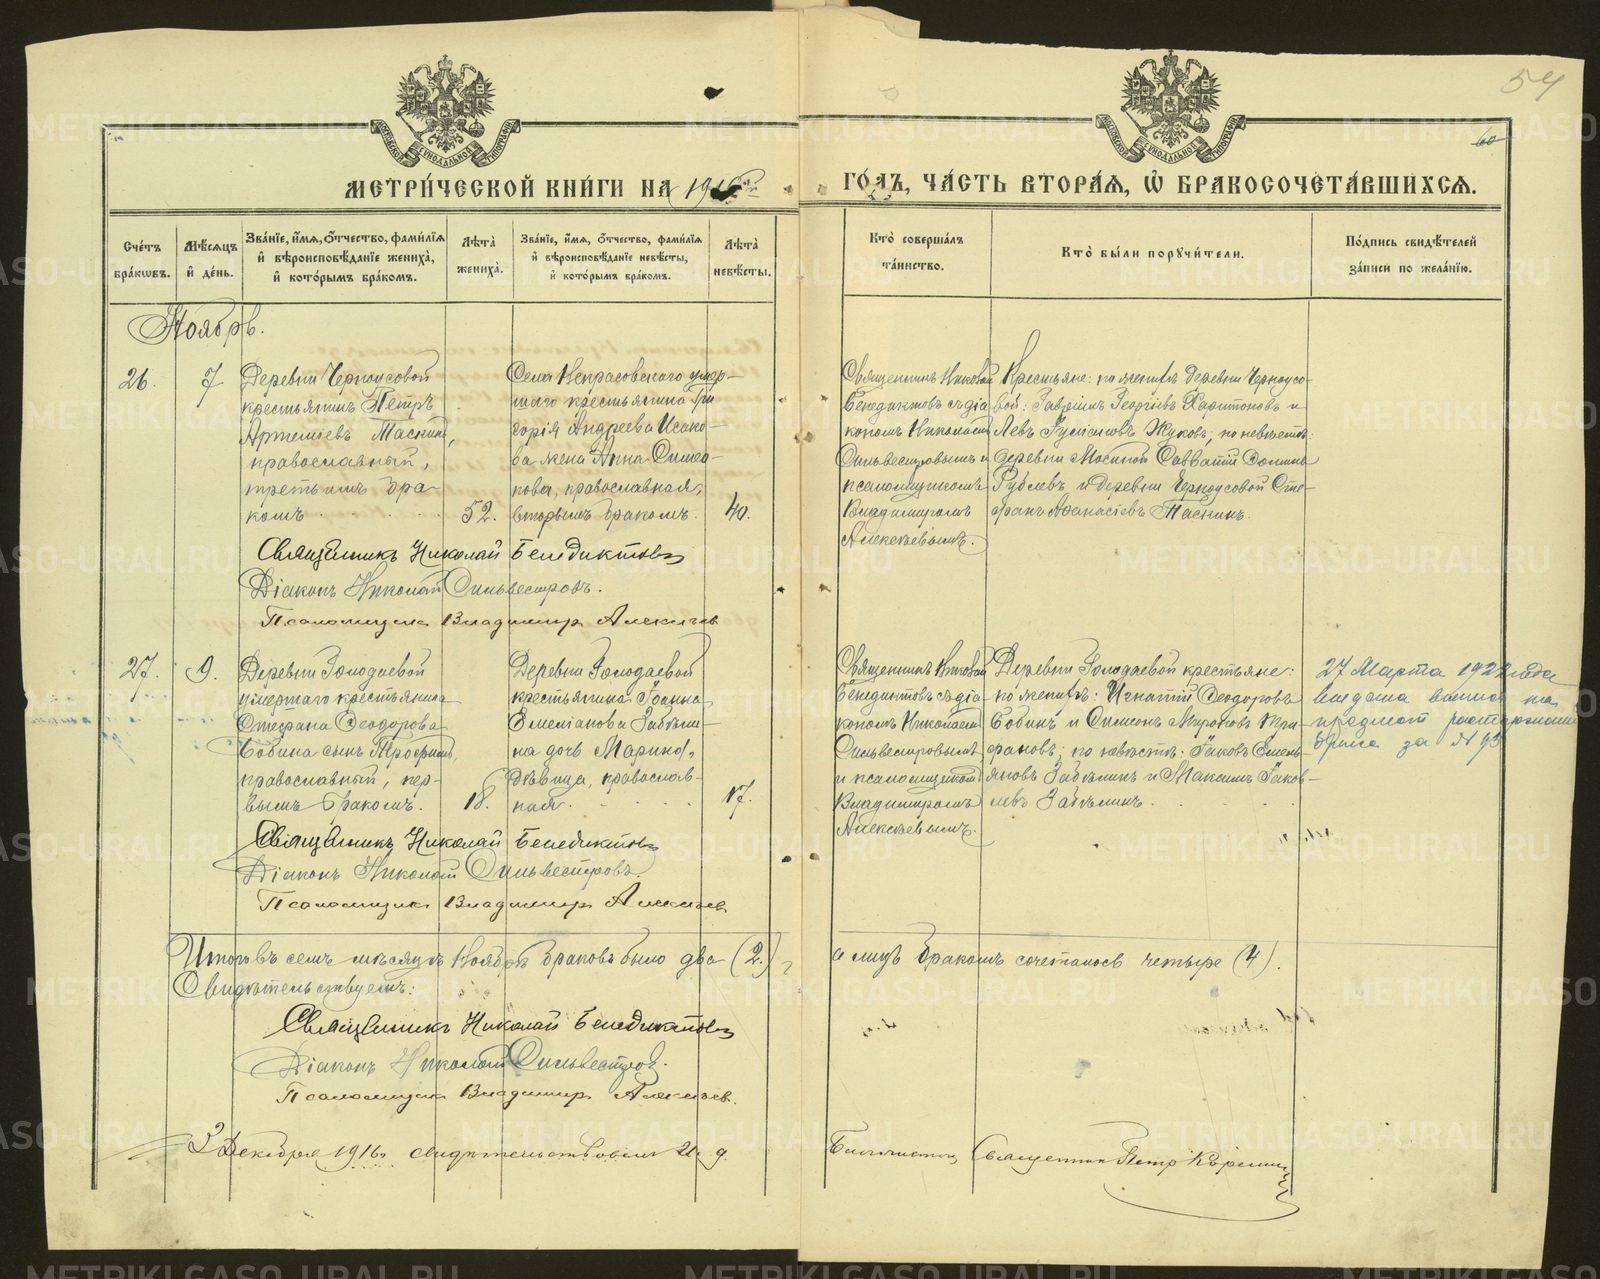 54
60
МЕТРИ́ЧЕСКОЙ КНИ́ГИ НА 1916й ГО́ДЪ, ЧА́СТЬ ВТОРА́Я, Ѡ БРАКОСОЧЕТА́ВШИХСЯ.
Сче́тъ бра́кωвъ.
Мѣ́сяцъ и́ де́нь.
Зва́нїе, и́мя, ѻ́тчество, фами́лїя и́ вѣроисповѣ́данїе жениха̀, и́ кото́рымъ бра́комъ.
Лѣ́та жениха̀.
Зва́нїе, и́мя, ѻ́тчество, фами́лїя и́ вѣроисповѣ́данїе невѣ́сты, и́ кото́рымъ бра́комъ.
Лѣ́та невѣ́сты.
Кто̀ соверша́лъ та́инство.
Кто̀ бы́ли поручи́тели.
По́дпись свидѣ́телей за́писи по жела́нїю.
Ноябрь.
26.
7
Деревни Черноусовой
крестьянинъ Петръ
Артемiевъ Таскинъ,
православный,
третьимъ бра-
комъ
52.
Села Некрасовскаго умер-
шаго крестьянина Гри
горiя Андреева Исако-
ва жена Анна Симео-
нова, православная,
вторымъ бракомъ.
40.
Священникъ Николай
Бенедиктовъ съ дiа
кономъ Николаемъ
Сильвестровымъ и
псаломщикомъ
Владимiромъ
Алексѣевымъ.
Крестьяне: по женихѣ деревни Черноусо-
вой: Гаврiилъ Георгiевъ Харитоновъ и
Левъ Жуковъ; по невѣстѣ:
деревни Мосиной Савватiй
Рублевъ и деревни Черноусовой Сте-
фанъ Аѳанасiевъ Таскинъ.
Священникъ Николай Бенедиктовъ
Дiаконъ Николай Сильвестровъ.
Псаломщикъ Владимiръ Алексѣевъ
27.
9.
Деревни Голодаевой
умершаго крестьянина
Стефана Ѳеодорова
Бобина сынъ Трофимъ,
православный, пер-
вымъ бракомъ.
18.
Деревни Голодаевой
крестьянина Iоанна
Емелiанова Забѣли-
на дочь Марина,
дѣвица, православ-
ная.
17.
Священникъ Николай
Бенедиктовъ съ дiа
кономъ Николаемъ
Сильвестровымъ
и псаломщикомъ
Владимiромъ
Алексѣевымъ.
Деревни Голодаевой крестьяне:
по женихѣ: Игнатiй Ѳеодоровъ
Бобинъ и Симеонъ Мироновъ Три
фановъ; по невѣстѣ: Iаковъ Емель
яновъ Забѣлинъ и Максимъ Iаков-
левъ Забѣлинъ.
27 Марта 1922 года
выдана выпись на
предмет расторжения
брака за № 93
Священникъ Николай Бенедиктовъ
Дiаконъ Николай Сильвестровъ.
Псаломщикъ Владимiръ Алексѣевъ
Итого въ семъ мѣсяцѣ Ноябрѣ браковъ было два (2.), а лицъ бракомъ сочеталось четыре (4).
Свидѣтельствуемъ:
Священникъ Николай Бенедиктовъ
Дiаконъ Николай Сильвестровъ.
Псаломщикъ Владимiръ Алексѣевъ.
3 Декабря 1916г свидѣтельствовалъ И. д. Благочиннаго, Священникъ Петръ
METRIKI.GASO-URAL.RU